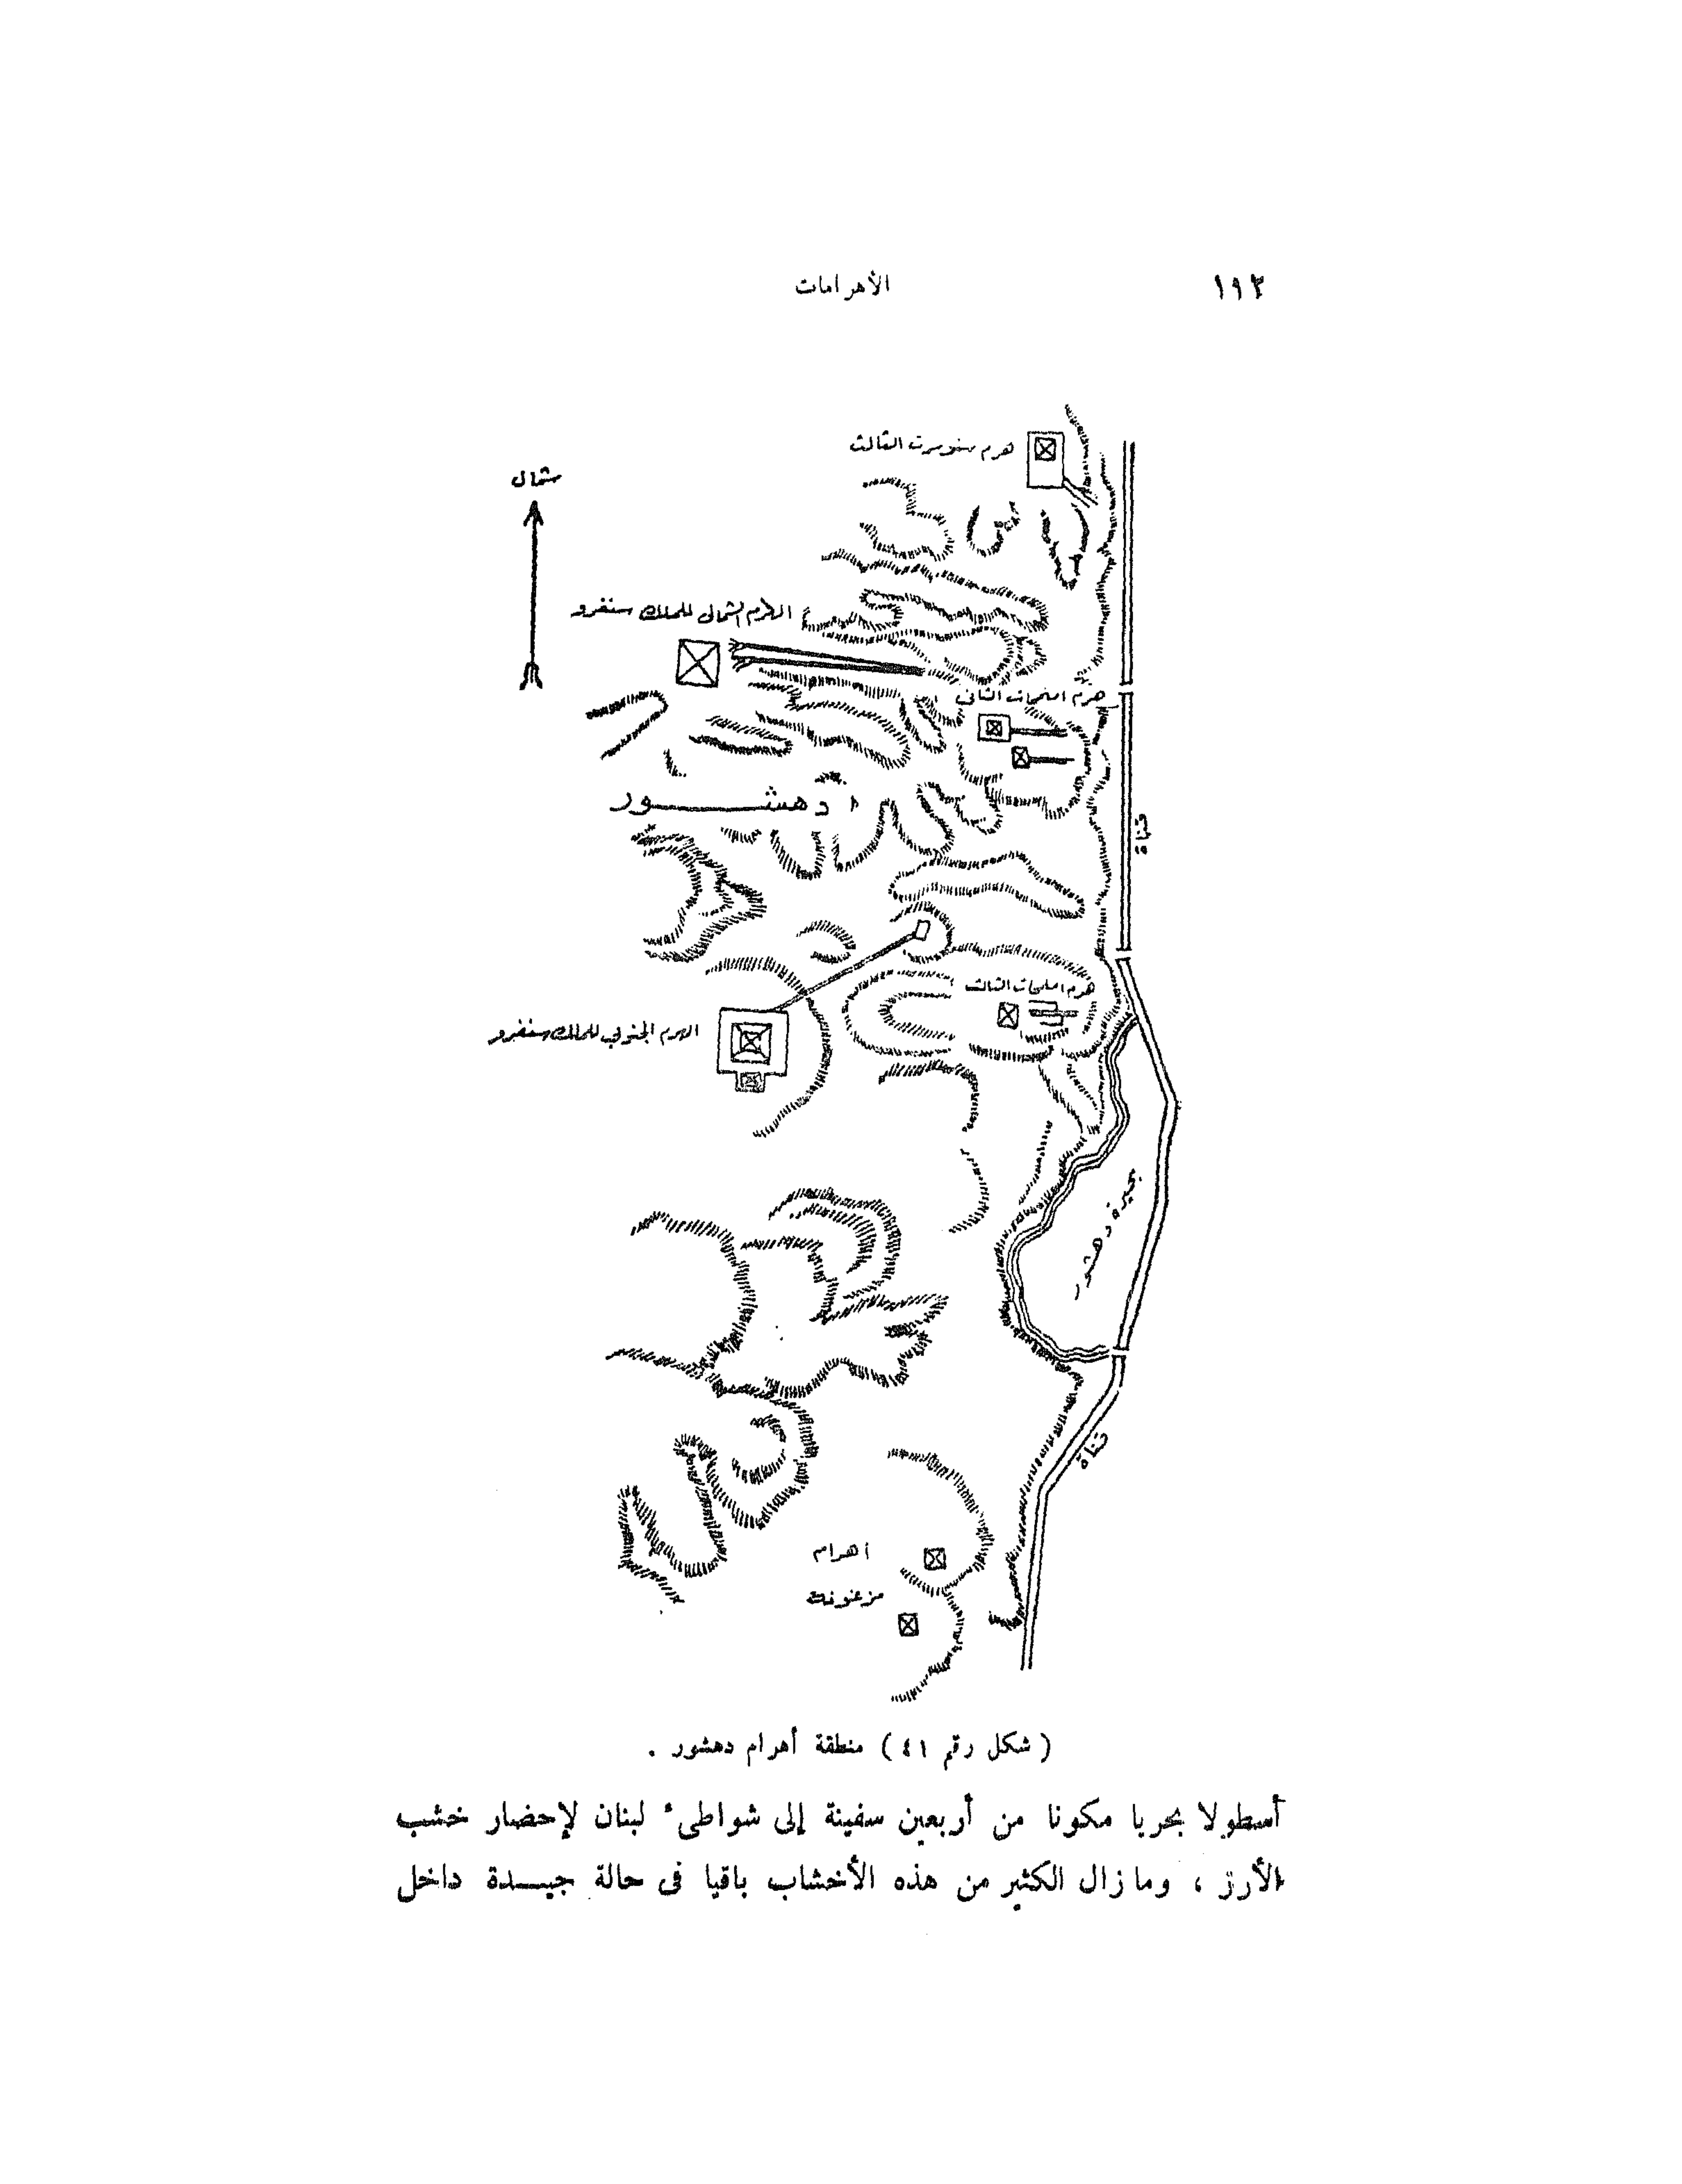 ١١٢
الأهرامات
هرم سنوسرت الثالث
شمال
الهرم الشمالى للملك سنفرو
هرم امنمحات الثانى
دهشور
قناة
هرم امنمحات الثالث
الهرم الجنوبي للملك سنفرو
بحيرة دهشور
قناة
اهرام
مزغونة
( شكل رقم ٤١ ) منطقة أهرام دهشور .
أسطولا بحريا مكونا من أربعين سفينة إلى شواطىء لبنان لإحضار خشب
الأرز ، وما زال الكثير من هذه الأخشاب باقيا فى حالة جيـــدة داخل